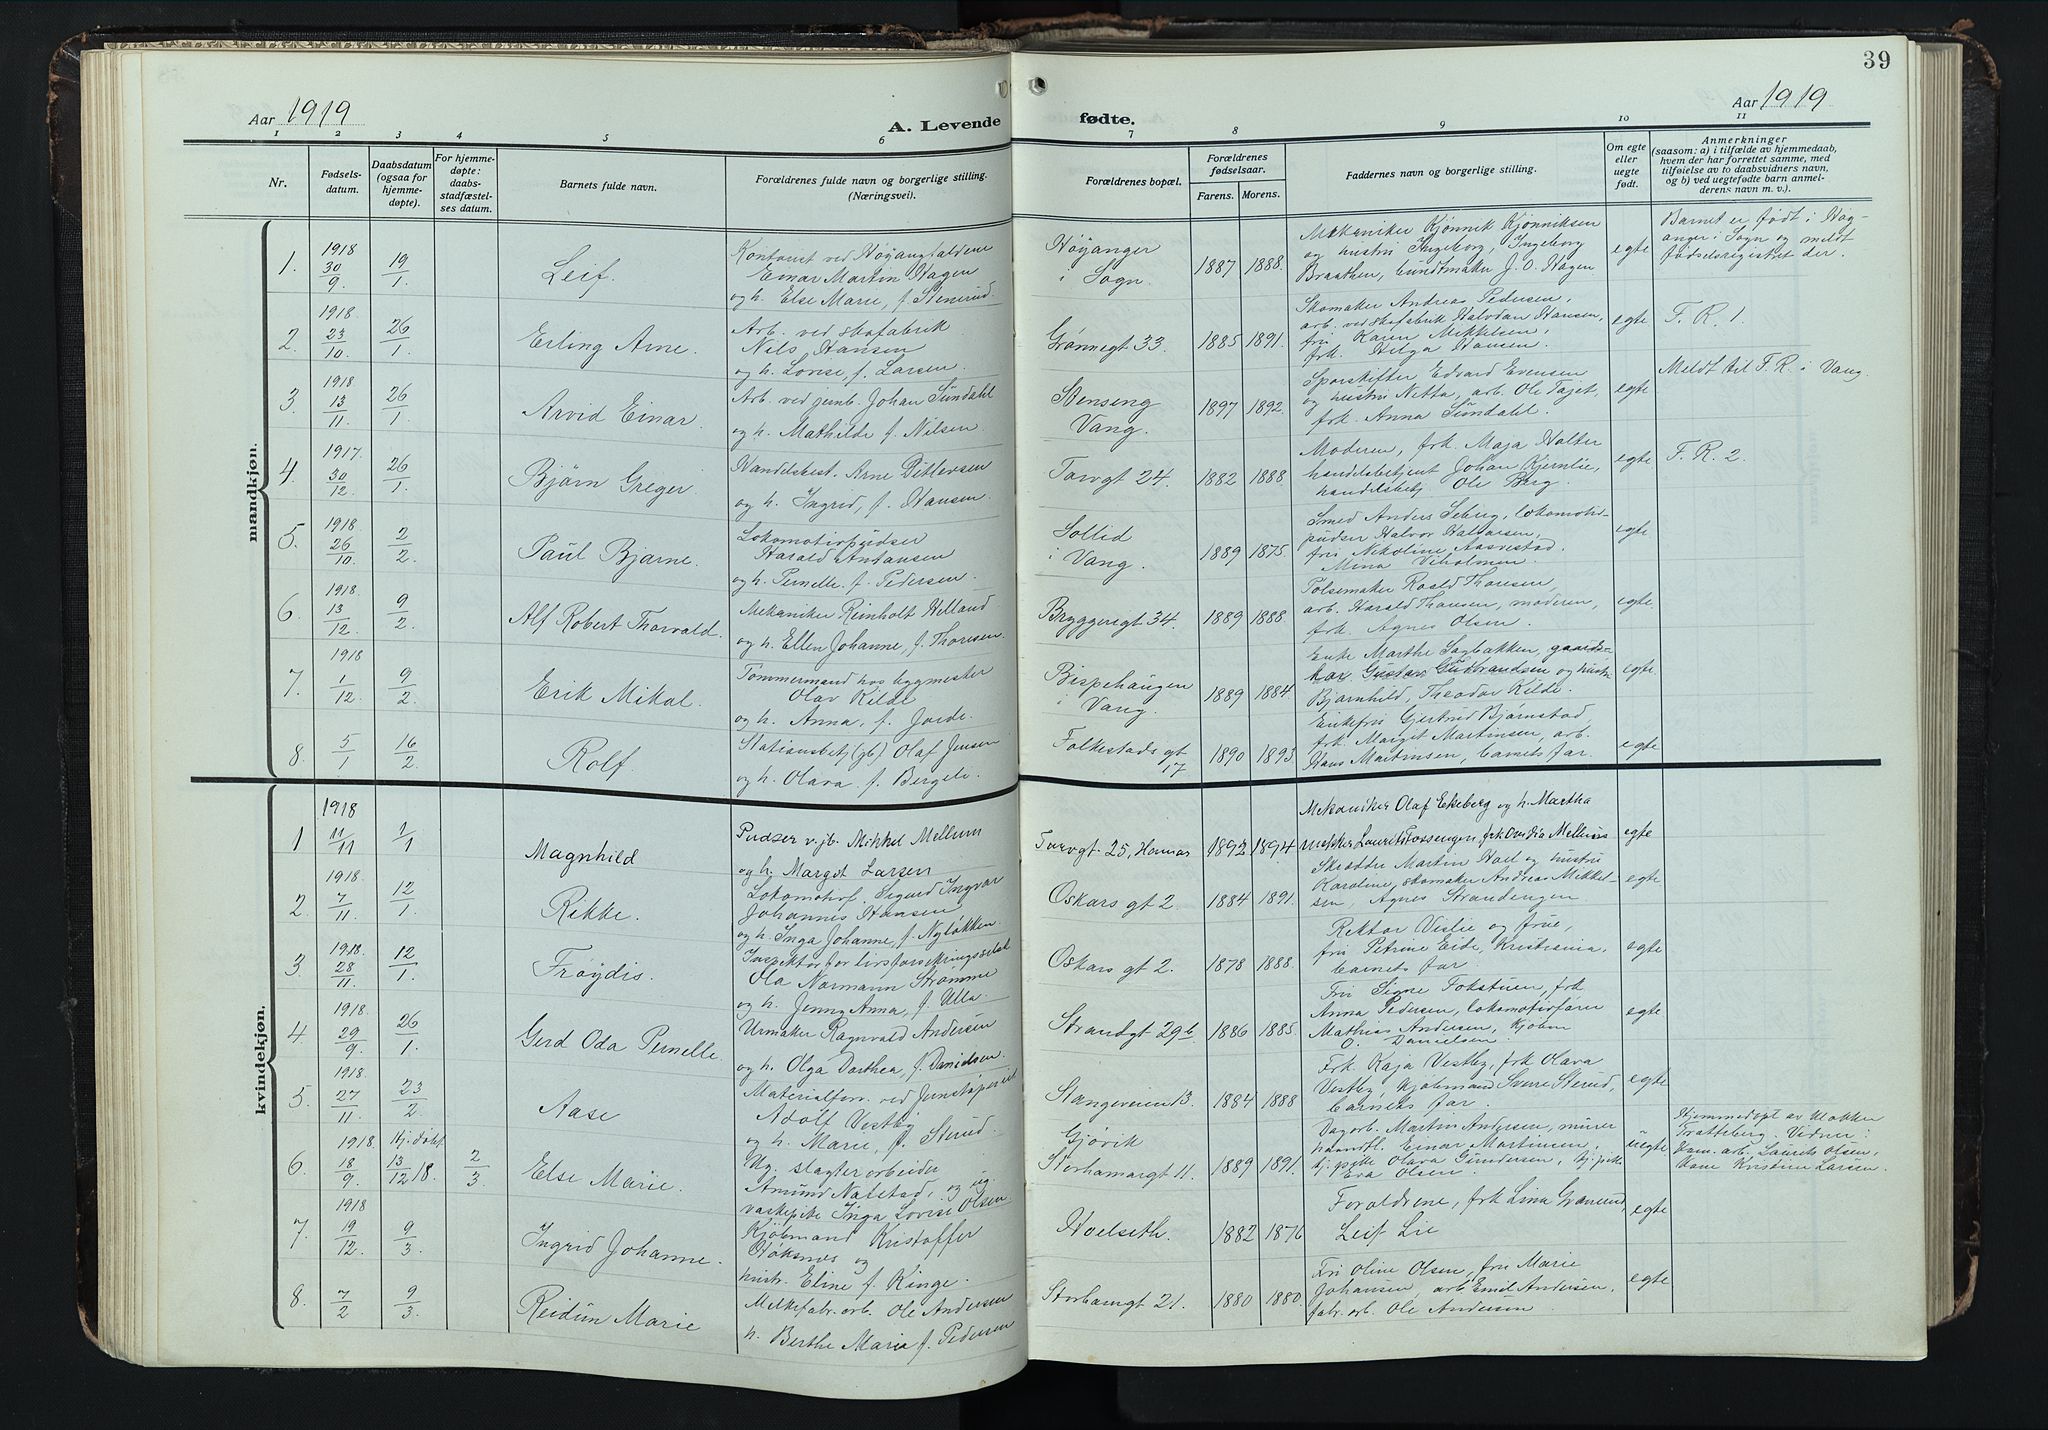 39
Aar 1919
A. Levende fødte.
Aar 1919
1 2 3 4 5 6 7 8 9 10 11
Nr.
Fødsels-
datum.
Daabsdatum
(ogsaa for
hjemme-
døpte).
For hjemme-
døpte:
daabs-
stadfæstel-
ses datum.
Barnets fulde navn.
Forældrenes fulde navn og borgerlige stilling.
(Næringsvei).
Forældrenes bopæl.
Forældrenes
fødselsaar.
Farens. Morens.
Faddernes navn og borgerlige stilling.
Om egte
eller
uegte
født.
Anmerkninger
(saasom: a) i tilfælde av hjemmedaab,
hvem der har forrettet samme, med
tilføielse av to daabsvidners navn,
og b) ved uegtefødte barn anmel-
derens navn m. v.).
mandkjøn.
1. 1918 30/9 19/1 Leif.
Kontorist ved Høyangfaldene
Einar Martin Hagen
og h. Else Marie, f. Stenerud.
Høyanger
i Sogn.
1887 1888.
Mekaniker Kjønnik Kjønniksen
og hustru Ingeborg, Ingeborg
Braathen, bundtmaker J. O. Hagen
egte
Barnet er født i Høy-
anger i Sogn og meldt
fødselsregistret der.
2. 1918. 23/10. 26/1 Erling Arne.
Arb. ved skofabrik
Nils Hansen
og h. Lovise, f. Larsen.
Grønnegt 33.
1885 1891.
Skomaker Andreas Pedersen,
arb. ved skofabrik Halvdan Hansen,
fru Karen Mikkelsen,
frk. Helga Hansen.
egte
F. R. 1.
3. 1918 13/11. 26/1 Arvid Einar.
Arb. ved jernb. Johan Sundahl
og h. Mathilde f. Nilsen.
Stenseng
Vang.
1897 1892.
Sporskifter Edvard Evensen
og hustru Netta, arb. Ole Tajet,
frk. Anna Sundahl.
egte
Meldt til F. R. i Vang.
4 1917. 30/12. 26/1 Bjørn Greger
Handelsbest. Arne Ditlevsen
og h. Ingrid, f. Hansen.
Torvgt 24.
1882 1888
Moderen, frk. Maja Holter
handelsbetjent Johan Kjernlie,
handelsbetj. Ole Berg.
egte
F. R. 2.
5. 1918. 26/10. 2/2 Paul Bjarne.
Lokomotivpudser
Harald Antonsen
og h. Pernelle. f. Pedersen.
Sollid
i Vang.
1889 1875.
Smed Anders Seberg, lokomotiv-
pudser Halvor Halvorsen,
fru Nikoline Aasvestad.
Mina Viholmen.
egte
6 1918 13/12. 9/2 Alf Robert Thorvald.
Mekaniker Reinholt Helland
og h. Ellen Johanne, f. Thoresen.
Bryggerigt 34.
1889 1888.
Pølsemaker Roald Thoresen,
arb. Harald Thoresen, moderen,
frk. Agnes Olsen.
egte.
7. 1918 1/12. 9/2. Erik Mikal.
Tømmermand hos bygmester
Olav Kilde
og h. Anna, f. Jorde.
Bispehaugen
i Vang.
1889 1884.
Enke Marthe Sagbakken, gaards-
kar Gustav Gudbrandsen og hustru
Bjarnhild, Theodor Kilde.
egte
8. 5/1 16/2 Rolf.
Stationsbetj. (gb) Olaf Jensen
og h. Olava. f. Bergeli.
Folkestads gt
17
1890 1893.
Enkefru Gjertrud Bjørnstad,
frk. Margit Martinsen, arb.
Hans Martinsen, barnets far.
egte
kvindekjøn.
1 1918 11/11 1/1 Magnhild
Pudser v. jb. Mikkel Mellum
og h. Margit Larsen
Torvgt. 25, Hamar
1892 1894
Mekaniker Olaf Ekeberg og h. Martha
egte
2. 1918. 7/11. 12/1 Rikke.
Lokomotivf. Sigurd Ingvar
Johannis Hansen
og h. Inga Johanne, f. Nyløkken.
Oskars gt 2.
1884 1891.
Skrædder Martin Hoel og hustru
Karoline, skomaker Andreas Mikkel-
sen, Agnes Strandengen.
egte
3 1918. 28/11. 12/1 Frøydis.
Inspektør for livsforsikringsselsk
Ola Normann Strømme
og h. Jenny Anna, f. Ulla.
Oskars gt 2.
1878 1888.
Rektor Veslie og frue,
fru Petrine Eide, Kristiania,
barnets far.
egte
4. 1918. 29/9. 26/1. Gerd Oda Pernelle.
Urmaker Ragnvald Andersen
og h. Olga Dorthea, f. Danielsen.
Strandgt 29b
1886 1885
Fru Signe Fokstuen, frk
Anna Pedersen, lokomotivfører
Mathias Andersen, kjøbm
O. Danielsen.
egte
5. 1918. 27/11. 23/2. Aase
Materialforv. ved Jernstøperiet
Adolf Vestby
og h. Marie, f. Sterud.
Stangeveien 13.
1884 1888
Frk. Kaja Vestby, frk Olava
Vestby, kjøbmand Sverre Sterud,
barnets far.
egte
6. 1918. 18/9. Hj. døbt 13/12 18. 2/3 Else Marie.
Ug. slagterarbeider
Amund Natstad, og ug.
vaskepike Inga Lovise Olsen.
Gjøvik
Storhamargt 11.
1889 1891.
Dagarb. Martin Andersen, murer
haandtl. Einar Martinsen,
hj. pike Olava Gundersen, hj. pike
Eva Olsen.
uegte
Hjemmedøpt av klokker
Trætteberg. Vidner:
Dam. arb. Laurits Olsen,
Kristine Larsen.
7. 1918 19/12. 9/3. Ingrid Johanne.
Kjøbmand Kristoffer
Høksnes og
hustr. Eline f. Ringe.
Hoelseth.
1882 1876
Forældrene, frk Lina Granlund,
Leif Lie
egte
8. 7/2 9/3. Reidun Marie
Melkefabr. arb. Ole Andersen
h. Berthe Marie f. Pedersen
Storhamgt 21.
1880 1880.
Fru Oline Olsen, fru Marie
Johansen, arb. Emil Andersen,
fabr. arb. Ole Andersen.
egte